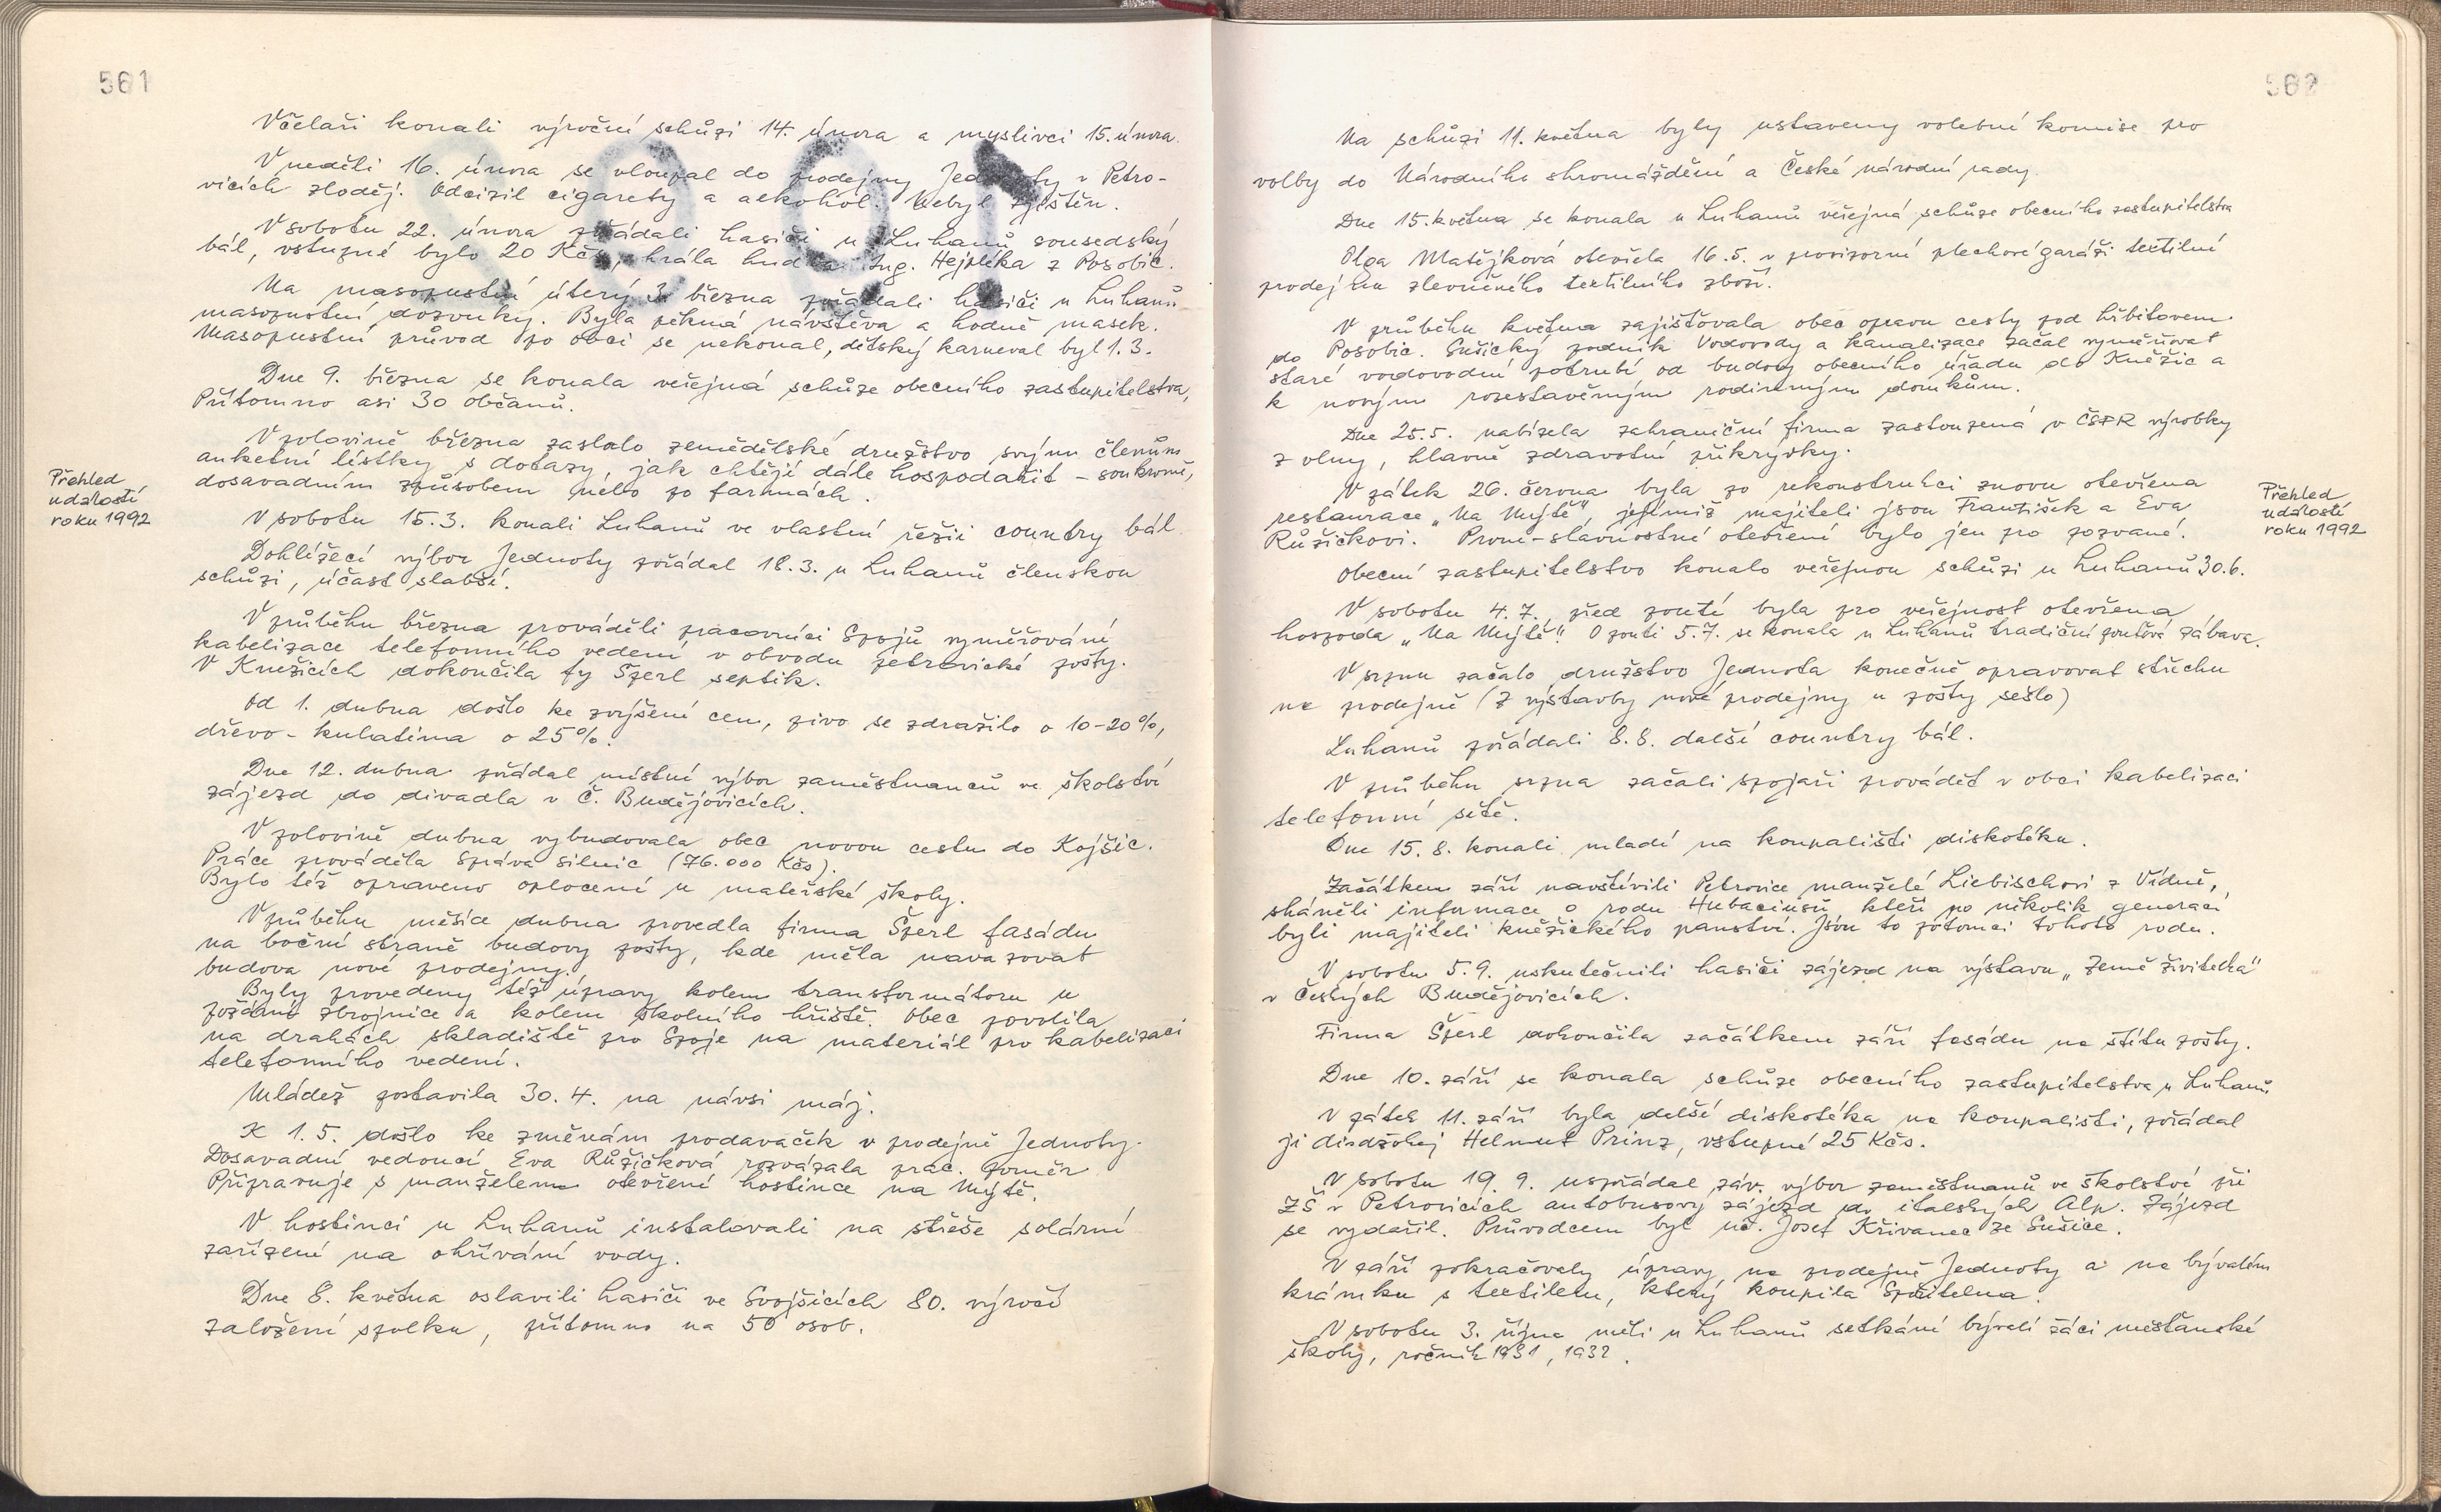 561
Včelaři konali výroční schůzi 14. února a myslivci 15. února.
V neděli 16. února se vloupal do prodejny Jednoty v Petro-
vicích zloděj. Odcizil cigarety a alkohol. Nebyl zjištěn.
V sobotu 22. února pořádali hasiči u Luhanů sousedský
bál, vstupné bylo 20 Kčs, hrála hudba Ing. Hejplíka z Posobic.
Na masopustní úterý 3. března pořádali hasiči u Luhanů
masopustní dozvuky. Byla pěkná návštěva a hodně masek.
Masopustní průvod po obci se nekonal, dětský karneval byl 1.3.
Dne 9. března se konala veřejná schůze obecního zastupitelstva,
Přítomno asi 30 občanů.
V polovině března zaslalo zemědělské družstvo svým členům
anketní lístky s dotazy, jak chtějí dále hospodařit - soukromě,
dosavadním způsobem nebo po farmách.
Přehled
událostí
roku 1992
V sobotu 15.3. konali Luhanů ve vlastní režii country bál.
Dohlížecí výbor Jednoty pořádal 18.3. u Luhanů členskou
schůzi, účast slabší.
V průběhu března prováděli pracovníci Spojů vyměřování
kabelizace telefonního vedení v obvodu petrovické pošty.
V Kněžicích dokončila fy Šperl septik.
Od 1. dubna došlo ke zvýšení cen, pivo se zdražilo o 10-20%,
dřevo - kulatina o 25%.
Dne 12. dubna pořádal místní výbor zaměstnanců ve školství
zájezd do divadla v Č. Budějovicích.
V polovině dubna vybudovala obec novou cestu do Kojšic.
Práce prováděla Správa silnic (76.000 Kčs).
Bylo též opraveno oplocení u mateřské školy.
V průběhu měsíce dubna provedla firma Šperl fasádu
na boční straně budovy pošty, kde měla navazovat
budova nové prodejny.
Byly provedeny též úpravy kolem transformátoru u
požární zbrojnice a kolem školního hřiště. Obec povolila
na drahách skladiště pro Spoje na materiál pro kabelizaci
telefonního vedení.
Mládež postavila 30.4. na návsi máj.
K 1.5. došlo ke změnám prodavaček v prodejně Jednoty.
Dosavadní vedoucí Eva Růžičková rozvázala prac. poměr.
Připravuje s manželem otevření hostince na Mýtě.
V hostinci u Luhanů instalovali na střeše solární
zařízení na ohřívání vody.
Dne 8. května oslavili hasiči ve Svojšicích 80. výročí
založení spolku, přítomno na 50 osob.
562
Na schůzi 11. května byly ustaveny volební komise pro
volby do Národního shromáždění a České národní rady.
Dne 15. května se konala u Luhanů veřejná schůze obecního zastupitelstva
Olga Matějková otevřela 16.5. v provizorní plechové garáži textilní
prodejnu zlevněného textilního zboží.
V průběhu května zajišťovala obec opravu cesty pod hřbitovem
do Posobic. Sušický podnik Vodovody a kanalizace začal vyměňovat
staré vodovodní potrubí od budovy obecního úřadu do Kněžic a
k novým rozestavěným rodinným domkům.
Dne 25.5. nabízela zahraniční firma zastoupená v ČSFR výrobky
z vlny, hlavně zdravotní přikrývky.
V pátek 26. června byla po rekonstrukci znovu otevřena
restaurace „Na Mýtě", jejímiž majiteli jsou František a Eva
Růžičkovi. První-slavnostní otevření bylo jen pro pozvané.
Přehled
událostí
roku 1992
Obecní zastupitelstvo konalo veřejnou schůzi u Luhanů 30.6.
V sobotu 4.7. před poutí byla pro veřejnost otevřena
hospoda „Na Mýtě". O pouti 5.7. se konala u Luhanů tradiční pouťová zábava.
V srpnu začalo družstvo Jednota konečně opravovat střechu
na prodejně (Z výstavby nové prodejny u pošty sešlo)
Luhanů pořádali 8.8. další country bál.
V průběhu srpna začali spojaři provádět v obci kabelizaci
telefonní sítě.
Dne 15.8. konali mladí na koupališti diskotéku.
Začátkem září navštívili Petrovice manželé Liebischovi z Vídně,
sháněli informace o rodu Hubaciusů, kteří po několik generací
byli majiteli kněžického panství. Jsou to potomci tohoto rodu.
V sobotu 5.9. uskutečnili hasiči zájezd na výstavu „Země živitelka"
v Českých Budějovicích.
Firma Šperl dokončila začátkem září fasádu na štítu pošty.
Dne 10. září se konala schůze obecního zastupitelstva u Luhanů
V pátek 11. září byla další diskotéka na koupališti, pořádal
ji diskžokej Helmut Prinz, vstupné 25 Kčs.
V sobotu 19.9. uspořádal záv. výbor zaměstnanů ve školství při
ZŠ v Petrovicích autobusový zájezd do italských Alp. Zájezd
se vydařil. Průvodcem byl uč. Josef Křivanec ze Sušice.
V září pokračovaly úpravy na prodejně Jednoty a na bývalém
krámku s textilem, který koupila Spořitelna.
V sobotu 3. října měli u Luhanů setkání bývalí žáci měšťanské
školy, ročník 1931, 1932.